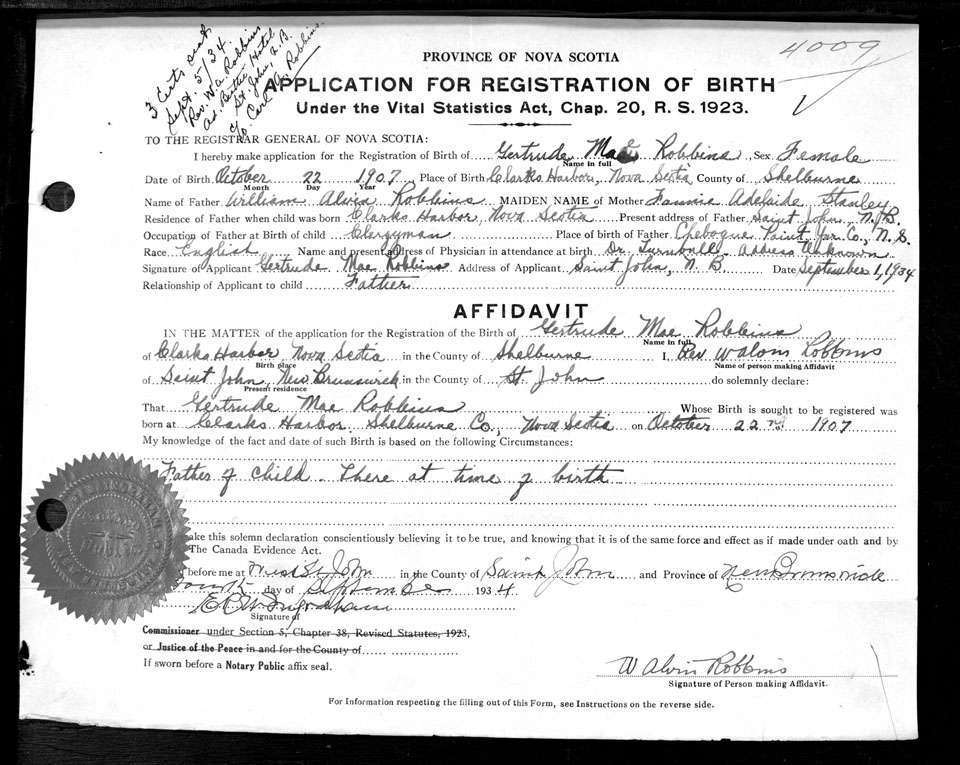 3 Certs sent
Sept. 5/34.
Rev. W. A. Robbins
St. John, N.B.
c/o Carl A. Robbins.
4009
PROVINCE OF NOVA SCOTIA
APPLICATION FOR REGISTRATION OF BIRTH
Under the Vital Statistics Act, Chap. 20, R. S. 1923.
TO THE REGISTRAR GENERAL OF NOVA SCOTIA:
I hereby make application for the Registration of Birth of Gertrude Mae Robbins, Sex Female
Name in full
Date of Birth October 22 1907 Place of Birth Clarks Harbor, Nova Scotia County of Shelburne
Month Day Year
Name of Father William Alvin Robbins MAIDEN NAME of Mother Fannie Adelaide Stanley
Residence of Father when child was born Clarks Harbor, Nova Scotia Present address of Father Saint John N.B.
Occupation of Father at Birth of child Clergyman Place of birth of Father Chebogue Point Yar. Co., N.S.
Race English Name and present address of Physician in attendance at birth Dr. Turnbull Address Unknown
Signature of Applicant Gertrude Mae Robbins Address of Applicant Saint John, N.B. Date September 1, 1934
Relationship of Applicant to child Father
AFFIDAVIT
IN THE MATTER of the application for the Registration of the Birth of Gertrude Mae Robbins
Name in full
of Clarks Harbor, Nova Scotia in the County of Shelburne I, Rev. W Alvin Robbins
Birth place Name of person making Affidavit
of Saint John, New Brunswick in the County of St. John do solemnly declare:
Present residence
That Gertrude Mae Robbins Whose Birth is sought to be registered was
born at Clarks Harbor, Shelburne Co., Nova Scotia on October 22nd 1907
My knowledge of the fact and date of such Birth is based on the following Circumstances:
Father of child. There at time of birth
ake this solemn declaration conscientiously believing it to be true, and knowing that it is of the same force and effect as if made under oath and by
The Canada Evidence Act.
before me at West St John in the County of Saint John and Province of New Brunswick
day of September 1934
Signature of
Commissioner under Section 5, Chapter 38, Revised Statutes, 1923,
or Justice of the Peace in and for the County of
If sworn before a Notary Public affix seal.
W Alvin Robbins
Signature of Person making Affidavit.
For Information respecting the filling out of this Form, see Instructions on the reverse side.